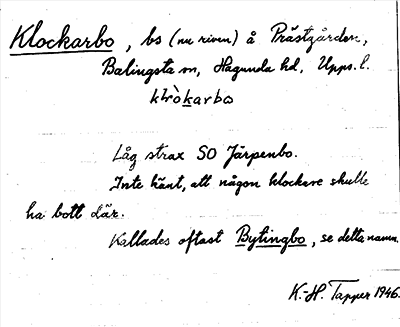 Klockarbo, bs (nu riven) å Prästgården,
Balingsta sn, Hagunda hd, Upps. l.
klròkarbo
Låg strax SO Järpenbo.
Inte känt, att någon klockare skulle
ha bott där.
Kallades oftast Bylingbo, se detta namn.
K.-H. Tapper 1946.